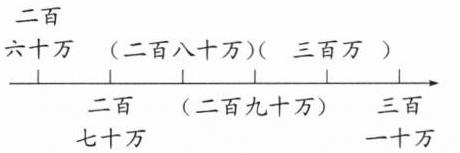 二百
六十万 (二百八十万)( 三百万 )
二百 (二百九十万) 三百
七十万 一十万